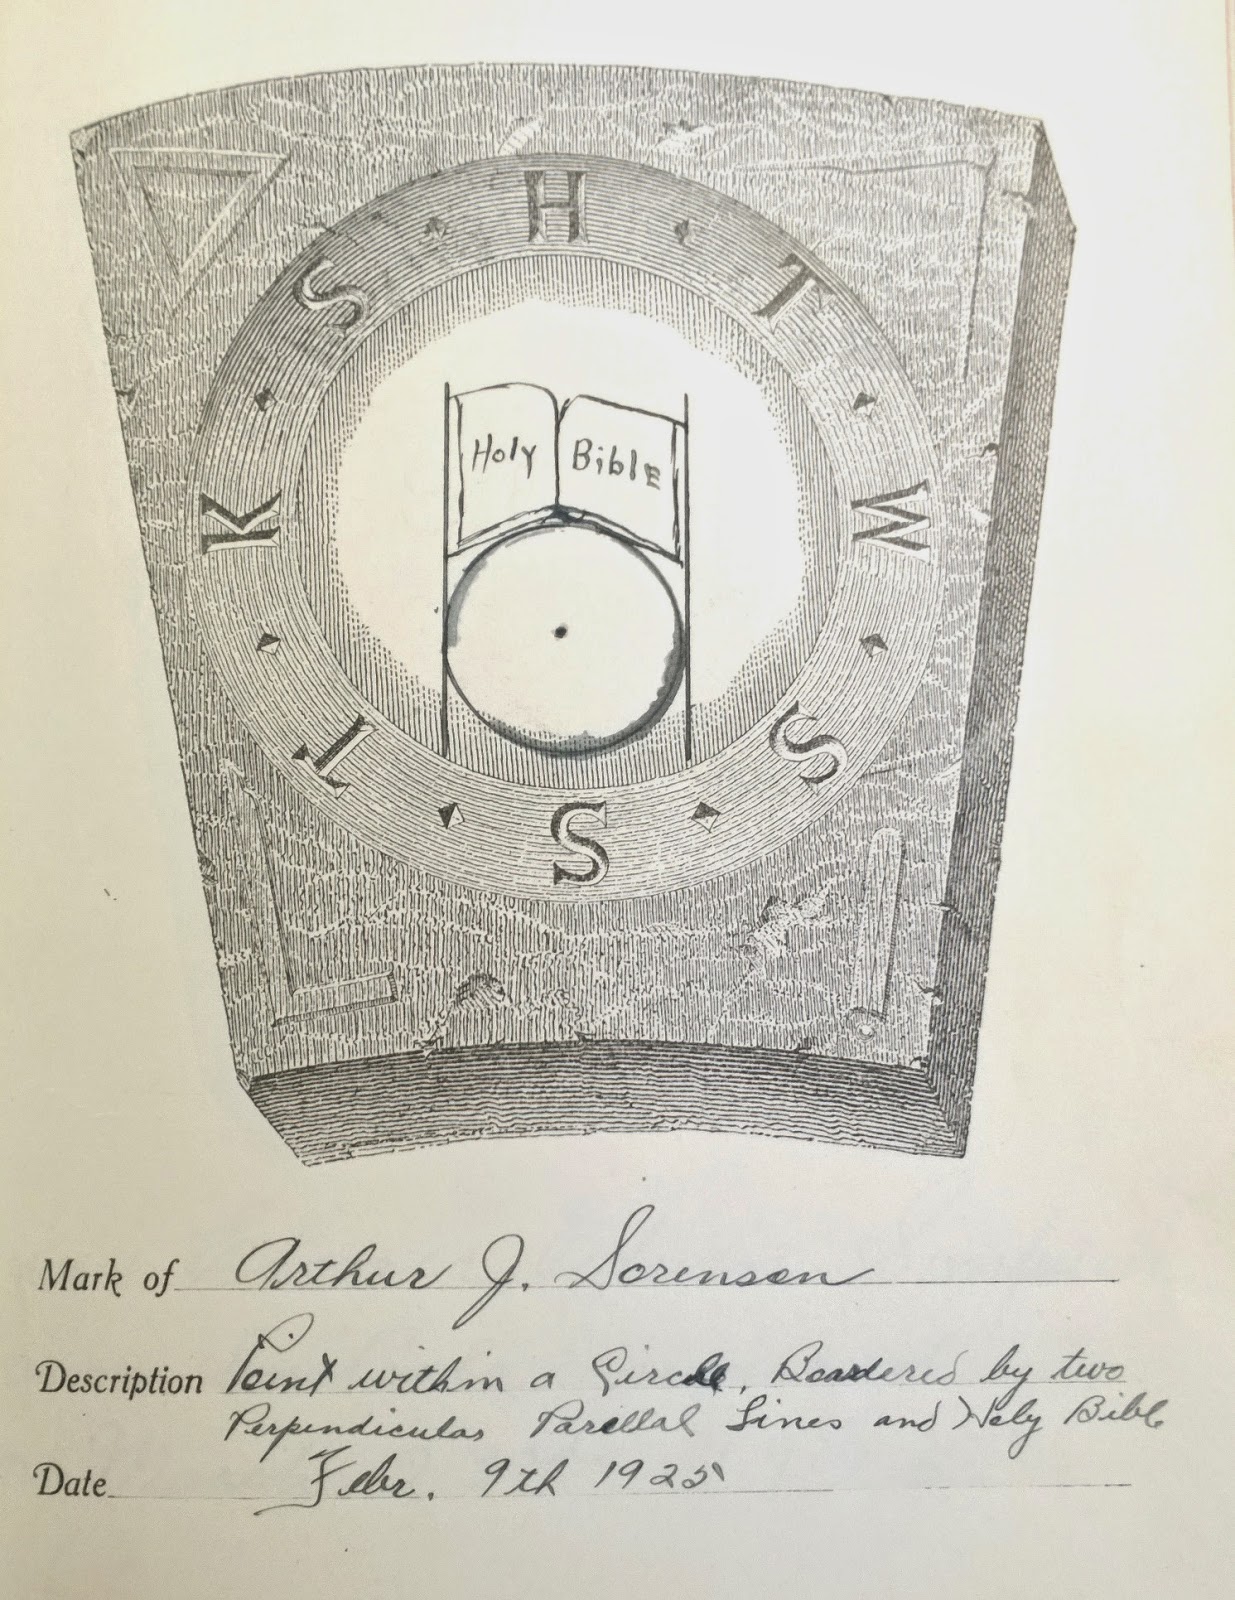 H T W S S T K S
Holy Bible
Mark of Arthur J. Sorensen
Description Point within a Circle, Boardered by two
Perpendicular Parellal Lines and Holy Bible
Date Febr. 9th 1925